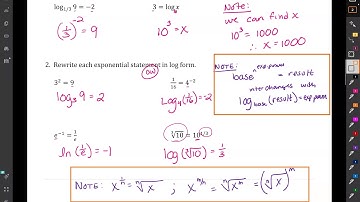 log₁/₃ 9 = −2
3 = log x
Note:
we can find x
(1/3)⁻² = 9
10³ = x
10³ = 1000
∴ x = 1000
2. Rewrite each exponential statement in log form.
3² = 9
1/16 = 4⁻²
log₃ 9 = 2
log₄(1/16) = −2
NOTE:
base^exponent = result
interchanges with
log_base(result) = exponent
e⁻¹ = 1/e
∛10 = 10^(1/3)
ln(1/e) = −1
log(∛10) = 1/3
NOTE: x^(1/n) = ⁿ√x ; x^(m/n) = ⁿ√x^m = (ⁿ√x)^m